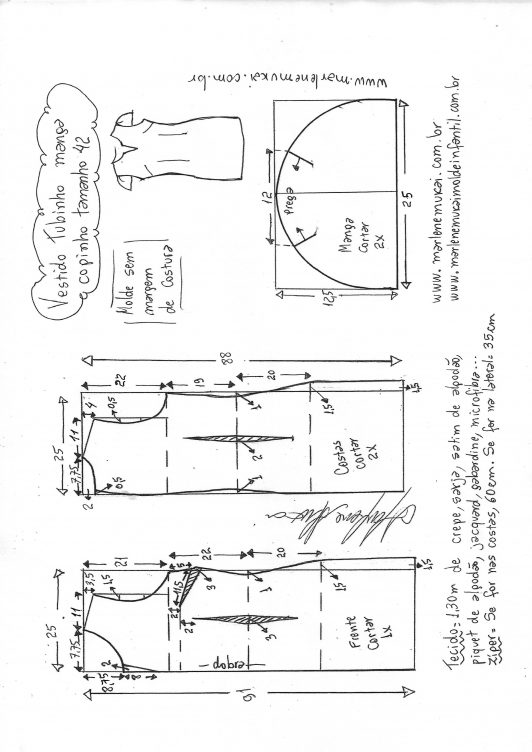 Vestido Tubinho manga
copinho tamanho 42
Molde sem
margem
de Costura
www.marlenemukai.com.br
12
Prega
Manga
Cortar
2x
12,5
25
www.marlenemukai.com.br
www.marlenemukaimoldeinfantil.com.br
88
22
19
20
25
7,75
11
4
0,5
2
0,5
1
2
1
1,5
1,5
Costas
Cortar
2x
91
21
22
20
25
7,75
11
3,5
1,5
2
8,75
8
5
11,5
3
2
2
1
3
1,5
1,5
dobra
Frente
Cortar
1x
Tecido= 1,30m de crepe, sarja, satim de alpodão,
piquet de alpodão, jacquard, gabardine, microfibra...
Ziper= Se for nas costas, 60cm. Se for na lateral= 35cm